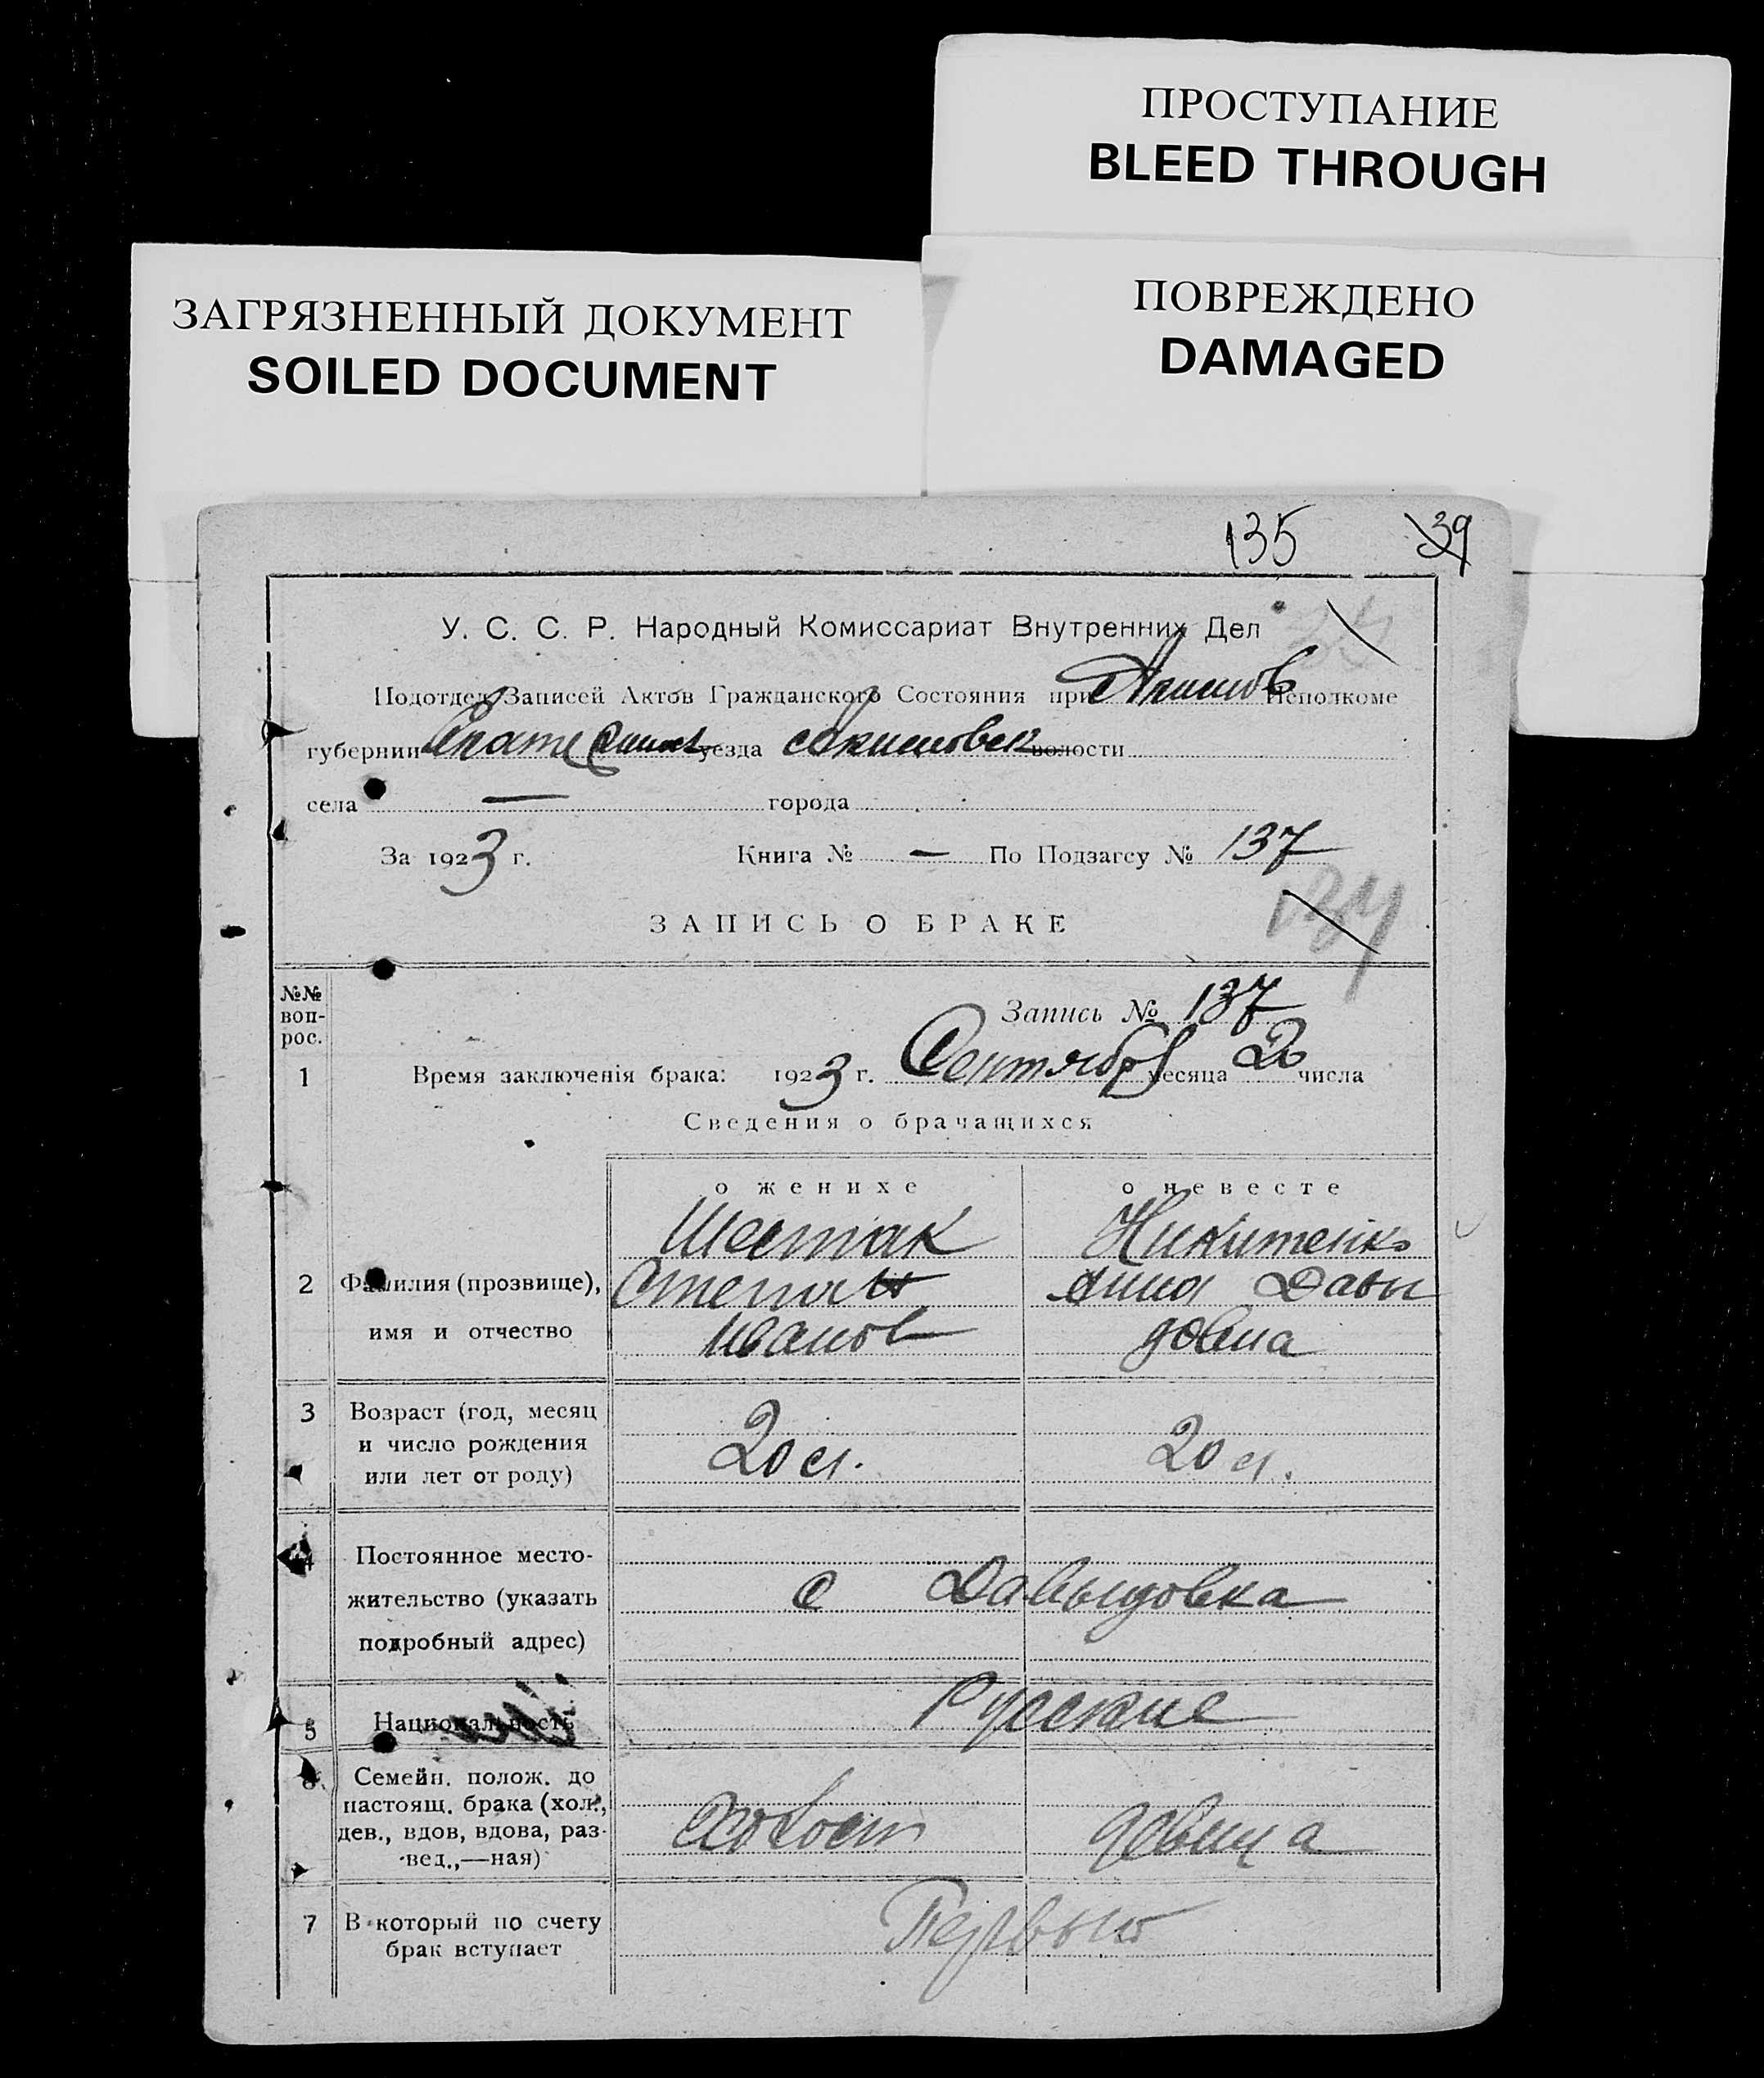 ПРОСТУПАНИЕ
BLEED THROUGH
ЗАГРЯЗНЕННЫЙ ДОКУМЕНТ
SOILED DOCUMENT
ПОВРЕЖДЕНО
DAMAGED
135 39
У. С. С. Р. Народный Комиссариат Внутренних Дел
Подотдел Записей Актов Гражданского Состояния при Акимов Исполкоме
губернии уезда волости
села — города
За 1923 г. Книга № — По Подзагсу № 137
ЗАПИСЬ О БРАКЕ
134
№№ воп-рос.
Запись № 137
1 Время заключенія брака: 1923 г. Сентября месяца числа
Сведения о брачащихся
о женихе о невесте
Шестак Никитенко
2 Фамилия (прозвище), Степан Анна Давы
имя и отчество Иванов довна
3 Возраст (год, месяц
и число рождения 20 л. 20 л.
или лет от роду)
4 Постоянное место-
жительство (указать с Давыдовка
подробный адрес)
5 Национальность Русские
6 Семейн. полож. до
настоящ. брака (хол.,
дев., вдов, вдова, раз- Холост девица
вед.,—ная)
7 В который по счету Первый
брак вступает